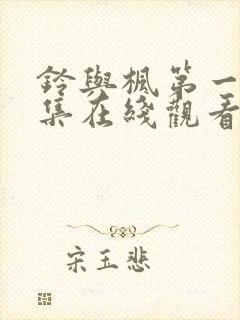 鈴與楓第一
集在綫觀看
宋玉悲